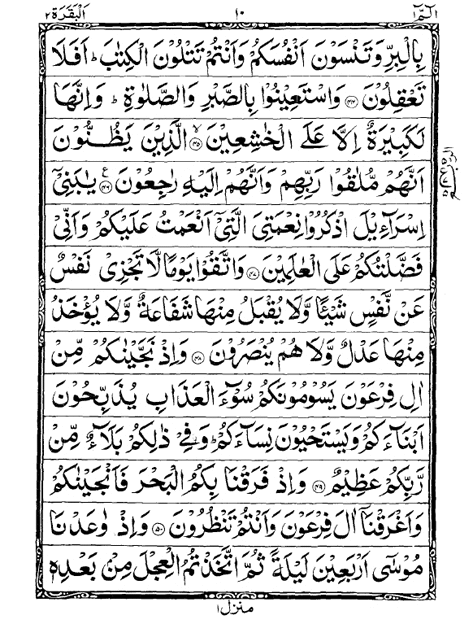 الٓمّٓ ١ ١٠ اَلْبَقَرَة ٢
بِالْبِرِّ وَتَنْسَوْنَ اَنْفُسَكُمْ وَاَنْتُمْ تَتْلُوْنَ الْكِتٰبَ ؕ اَفَلَا
تَعْقِلُوْنَ ﴿۴۴﴾ وَاسْتَعِيْنُوْا بِالصَّبْرِ وَالصَّلٰوةِ ؕ وَاِنَّهَا
لَكَبِيْرَةٌ اِلَّا عَلَى الْخٰشِعِيْنَ ﴿۴۵﴾ الَّذِيْنَ يَظُنُّوْنَ
اَنَّهُمْ مُّلٰقُوْا رَبِّهِمْ وَاَنَّهُمْ اِلَيْهِ رٰجِعُوْنَ ﴿۴۶﴾ يٰبَنِيْٓ
اِسْرَآءِيْلَ اذْكُرُوْا نِعْمَتِيَ الَّتِيْٓ اَنْعَمْتُ عَلَيْكُمْ وَاَنِّيْ
فَضَّلْتُكُمْ عَلَى الْعٰلَمِيْنَ ﴿۴۷﴾ وَاتَّقُوْا يَوْمًا لَّا تَجْزِيْ نَفْسٌ
عَنْ نَّفْسٍ شَيْـًٔا وَّلَا يُقْبَلُ مِنْهَا شَفَاعَةٌ وَّلَا يُؤْخَذُ
مِنْهَا عَدْلٌ وَّلَا هُمْ يُنْصَرُوْنَ ﴿۴۸﴾ وَاِذْ نَجَّيْنٰكُمْ مِّنْ
اٰلِ فِرْعَوْنَ يَسُوْمُوْنَكُمْ سُوْٓءَ الْعَذَابِ يُذَبِّحُوْنَ
اَبْنَآءَكُمْ وَيَسْتَحْيُوْنَ نِسَآءَكُمْ ؕ وَفِيْ ذٰلِكُمْ بَلَآءٌ مِّنْ
رَّبِّكُمْ عَظِيْمٌ ﴿۴۹﴾ وَاِذْ فَرَقْنَا بِكُمُ الْبَحْرَ فَاَنْجَيْنٰكُمْ
وَاَغْرَقْنَآ اٰلَ فِرْعَوْنَ وَاَنْتُمْ تَنْظُرُوْنَ ﴿۵۰﴾ وَاِذْ وٰعَدْنَا
مُوْسٰٓى اَرْبَعِيْنَ لَيْلَةً ثُمَّ اتَّخَذْتُمُ الْعِجْلَ مِنْۢ بَعْدِهٖ
منزل ١